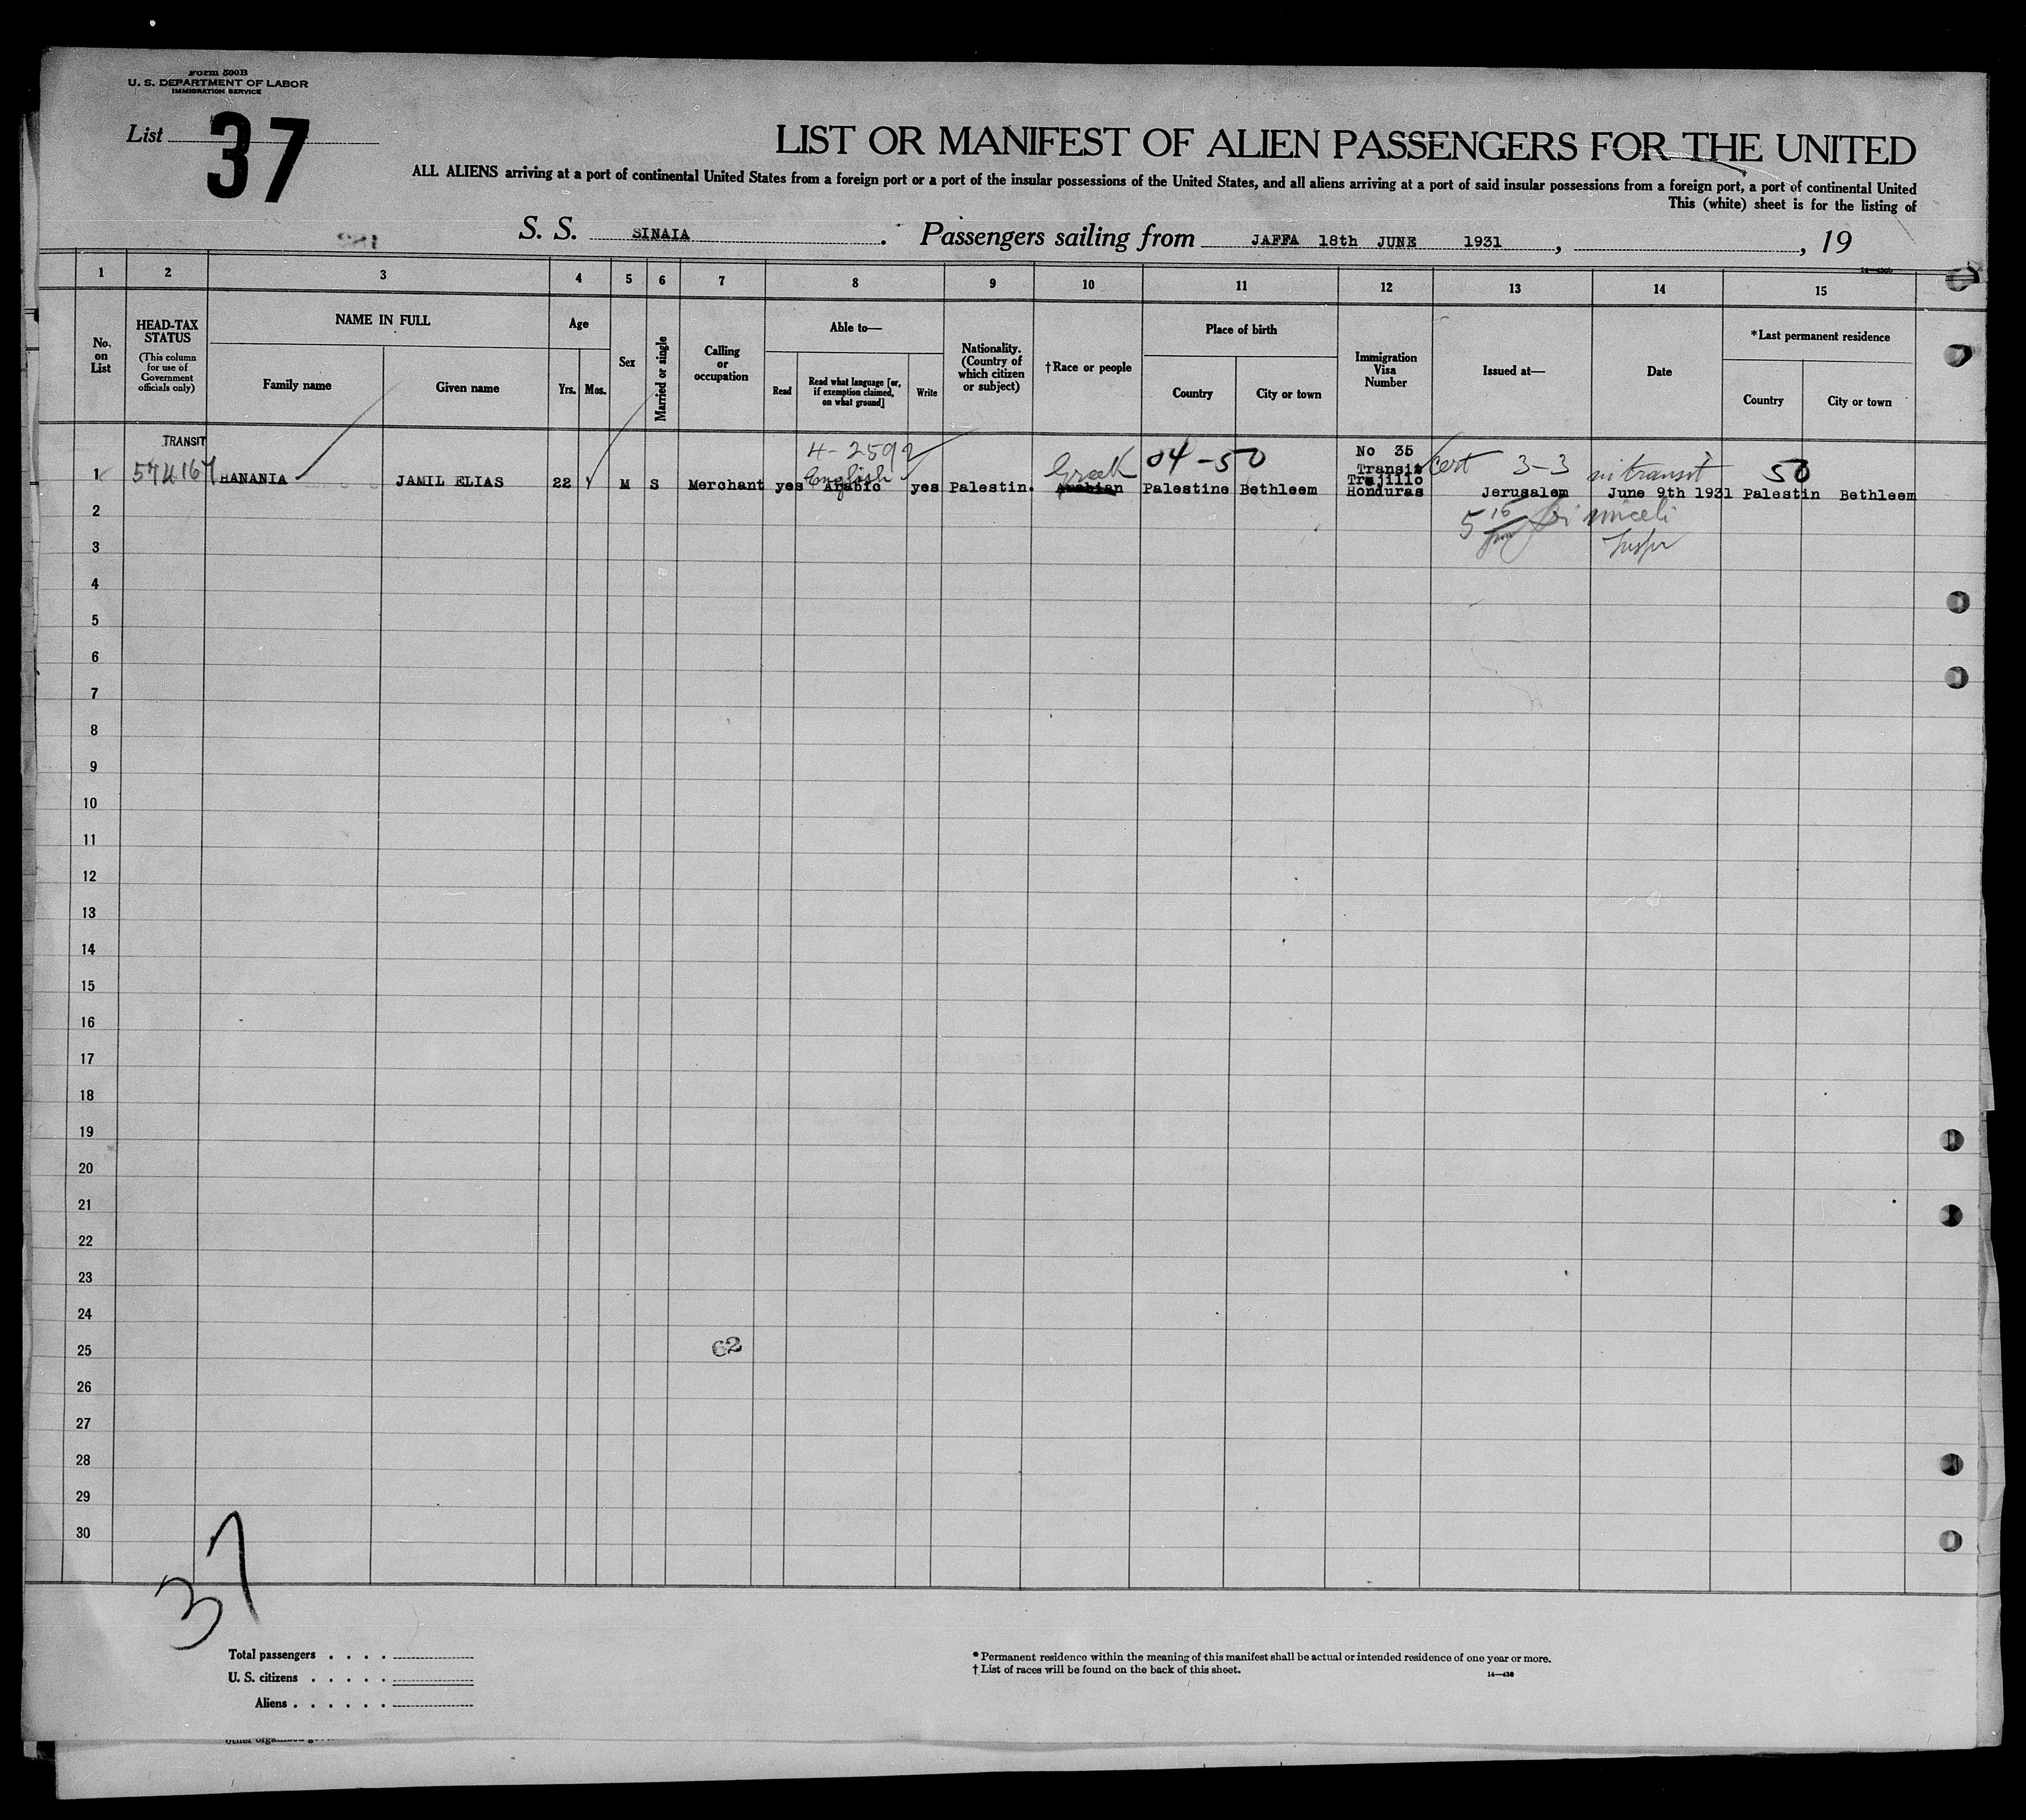 Form 500B
U. S. DEPARTMENT OF LABOR
IMMIGRATION SERVICE
List 37
LIST OR MANIFEST OF ALIEN PASSENGERS FOR THE UNITED
ALL ALIENS arriving at a port of continental United States from a foreign port or a port of the insular possessions of the United States, and all aliens arriving at a port of said insular possessions from a foreign port, a port of continental United
This (white) sheet is for the listing of
S. S. SINAIA . Passengers sailing from JAFFA 18th JUNE 1931 , , 19
1 2 3 4 5 6 7 8 9 10 11 12 13 14 15
No. on List
HEAD-TAX STATUS
(This column for use of Government officials only)
NAME IN FULL
Family name
Given name
Age
Yrs.
Mos.
Sex
Married or single
Calling or occupation
Able to—
Read
Read what language [or, if exemption claimed, on what ground]
Write
Nationality. (Country of which citizen or subject)
†Race or people
Place of birth
Country
City or town
Immigration Visa Number
Issued at—
Date
*Last permanent residence
Country
City or town
TRANSIT
4-2592
04-50
No 35
Transit
Cert 3-3 in transit 50
English
Greek
Trujillo
1 574167 HANANIA JAMIL ELIAS 22 M S Merchant yes Arabic yes Palestin. Arabian Palestine Bethleem Honduras Jerusalem June 9th 1931 Palestin Bethleem
2
Inspr
3
4
5
6
7
8
9
10
11
12
13
14
15
16
17
18
19
20
21
22
23
24
25
62
26
27
28
29
30
37
Total passengers . . . .
U. S. citizens . . . . .
Aliens . . . . . .
* Permanent residence within the meaning of this manifest shall be actual or intended residence of one year or more.
† List of races will be found on the back of this sheet.
14—430